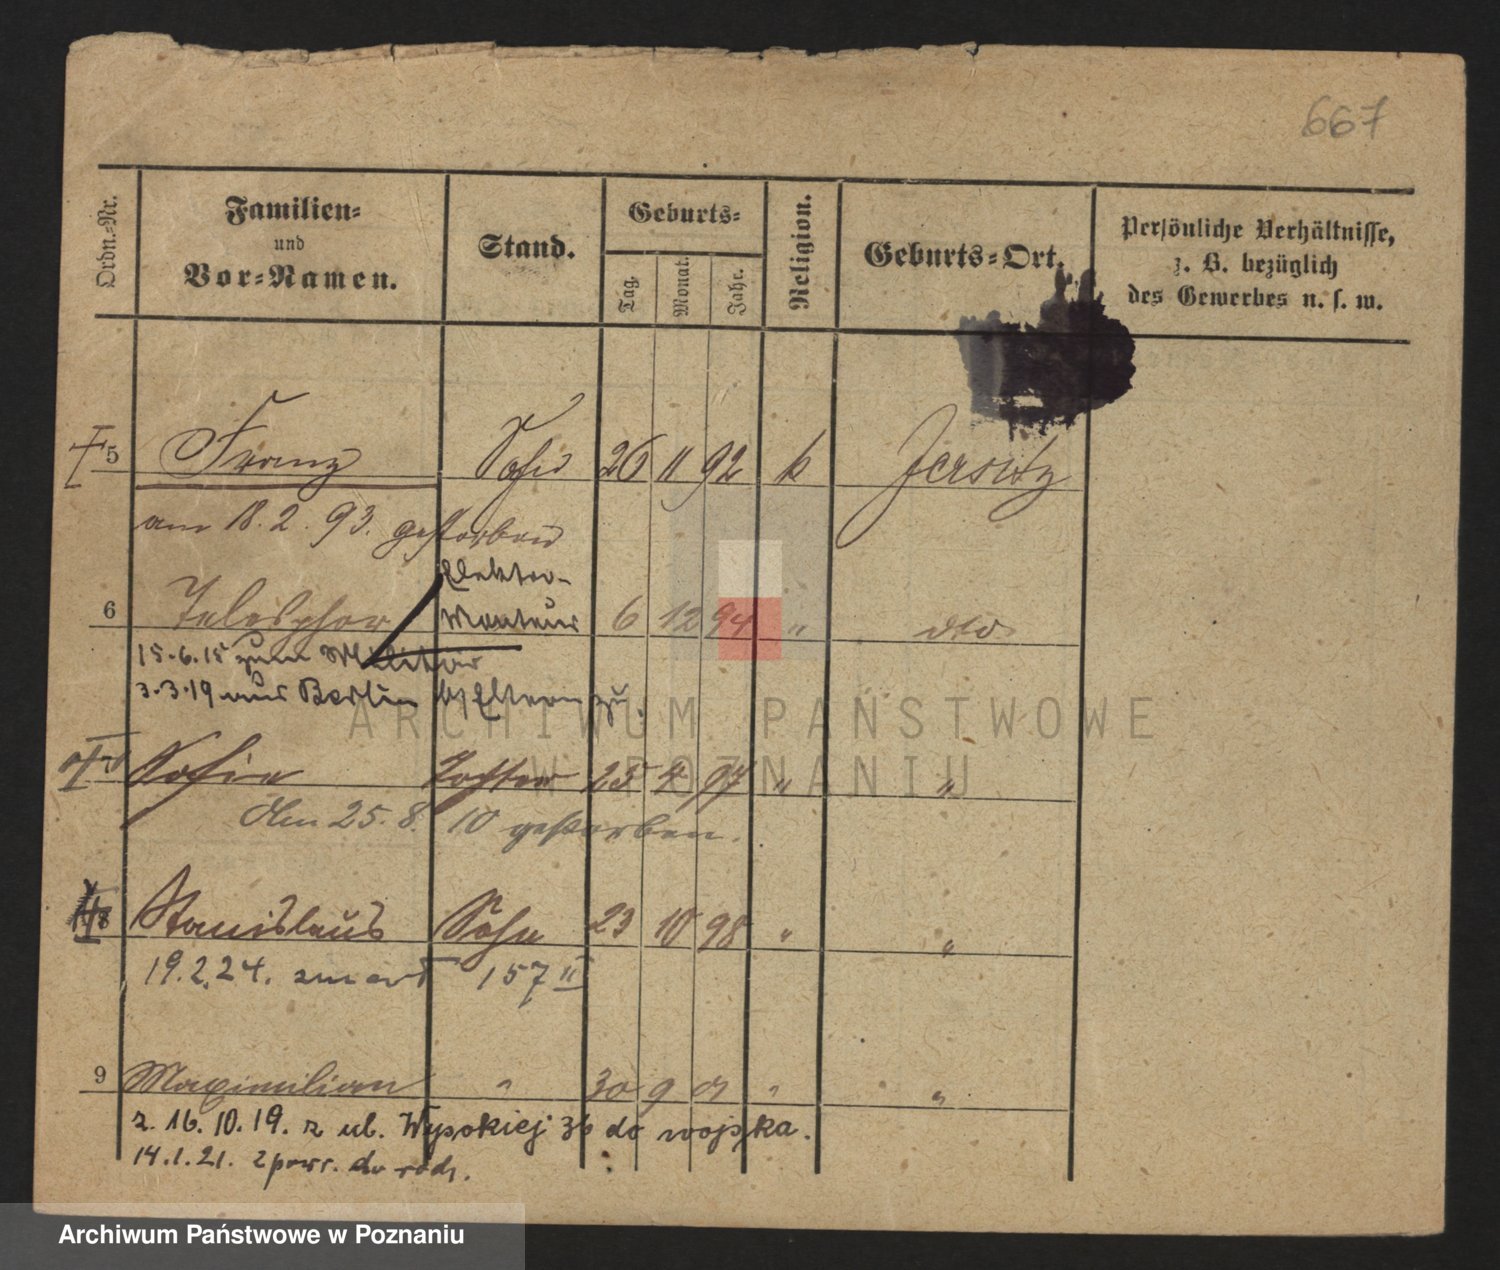 667
Ordn.-Nr.
Familien-
und
Vor-Namen.
Stand.
Geburts-
Tag.
Monat.
Jahr.
Religion.
Geburts-Ort.
Persönliche Verhältnisse,
z. B. bezüglich
des Gewerbes u. s. w.
5 Franz Sohn 26 11 92 k Jersitz
am 18.2.93. gestorben
Elektro-
6 Telesphor Monteur 6 12 94 " dto
15.6.15 zum Militär
3.3.19 aus Berlin b/Eltern zu.
7 Sofie Tochter 25 4 97 " "
Am 25.8.10 gestorben.
8 Stanislaus Sohn 23 10 98 " "
19.2.24. zmarł 157 II
9 Maximilian " 30 9 01 " "
z. 16.10.19. z ul. Wysokiej 36 do wojska.
14.1.21. zpowr. do rodz.
ARCHIWUM PAŃSTWOWE
W POZNANIU
Archiwum Państwowe w Poznaniu